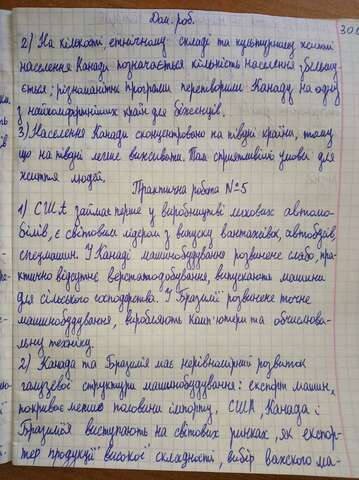 Дом. роб.
30
2) На кількості, етнічному складі та культурному житті
населення Канади позначається кількість населення збільшу-
ється; різноманітні програми перетворили Канаду на одну
з найкомфортніших країн для біженців.
3) Населення Канади сконцентровано на півдні країни, тому
що на півдні легше виживати. Там сприятливіші умови для
життя людей.
Практична робота №5
1) США займає перше у виробництві легкових автомо-
білів, є світовим лідером з випуску вантажівок, автобусів,
спецмашин. У Канаді машинобудування розвинене слабо, пра-
ктично відсутнє верстатобудування, випускають машини
для сільського господарства. У Бразилії розвинене точне
машинобудування, виробляють комп'ютери та обчислюва-
льну техніку.
2) Канада та Бразилія має нерівномірний розвиток
галузевої структури машинобудування: експорт машин,
покриває менше половини імпорту. США, Канада і
Бразилія виступають на світових ринках, як експор-
тер продукції "високої" складності, вибір важкого ма-